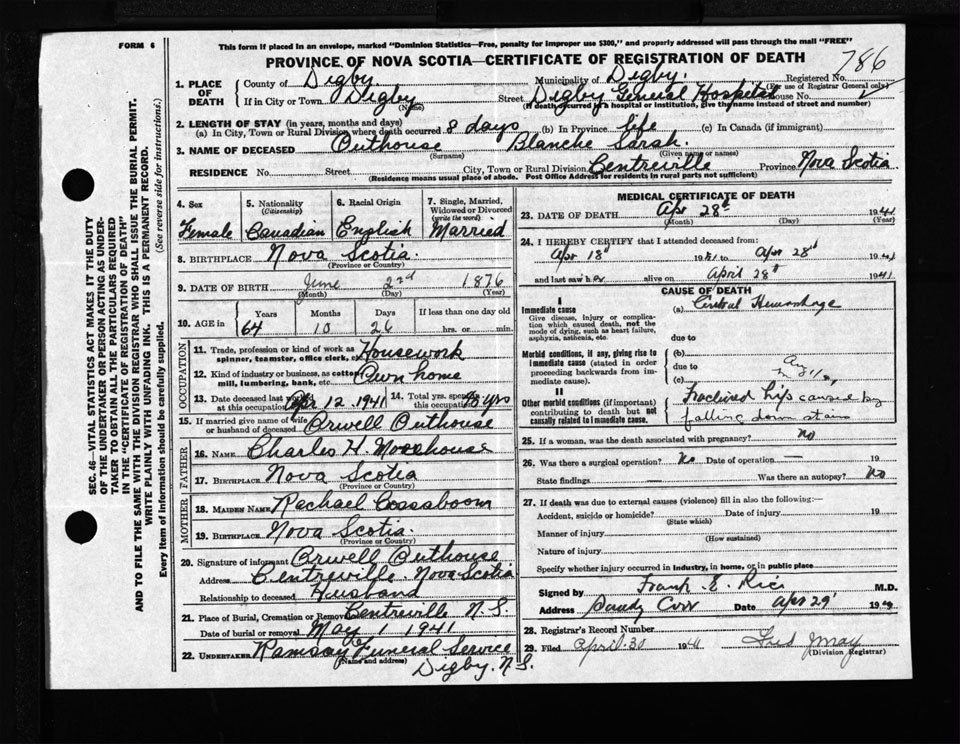 FORM 6
This form if placed in an envelope, marked "Dominion Statistics—Free, penalty for improper use $300," and properly addressed will pass through the mail "FREE"
PROVINCE OF NOVA SCOTIA—CERTIFICATE OF REGISTRATION OF DEATH
786
1. PLACE OF DEATH
County of Digby Municipality of Digby. Registered No.
(For use of Registrar General only)
If in City or Town Digby Street Digby General Hospital House No.
(Name) (If death occurred in a hospital or institution, give the name instead of street and number)
2. LENGTH OF STAY (in years, months and days)
(a) In City, Town or Rural Division where death occurred 8 days (b) In Province life (c) In Canada (if immigrant)
3. NAME OF DECEASED Outhouse Blanche Sarah
(Surname) (Given name or names)
RESIDENCE No. Street City, Town or Rural Division Centreville Province Nova Scotia
(Residence means usual place of abode. Post Office Address for residents in rural parts not sufficient)
SEC. 46—VITAL STATISTICS ACT MAKES IT THE DUTY
OF THE UNDERTAKER OR PERSON ACTING AS UNDER-
TAKER TO OBTAIN ALL THE PARTICULARS REQUIRED
IN THE "CERTIFICATE OF REGISTRATION OF DEATH"
AND TO FILE THE SAME WITH THE DIVISION REGISTRAR WHO SHALL ISSUE THE BURIAL PERMIT.
WRITE PLAINLY WITH UNFADING INK. THIS IS A PERMANENT RECORD.
Every item of information should be carefully supplied. (See reverse side for instructions.)
4. Sex
Female
5. Nationality
(Citizenship)
Canadian
6. Racial Origin
English
7. Single, Married, Widowed or Divorced
(write the word)
Married
8. BIRTHPLACE Nova Scotia
(Province or Country)
9. DATE OF BIRTH June 2nd 1876
(Month) (Day) (Year)
10. AGE in Years Months Days If less than one day old
64 10 26 hrs. or min.
OCCUPATION
11. Trade, profession or kind of work as spinner, teamster, office clerk, etc. Housework
12. Kind of industry or business, as cotton mill, lumbering, bank, etc. Own home
13. Date deceased last worked at this occupation Apr 12, 1941 14. Total yrs. spent in this occupation yrs
15. If married give name of wife or husband of deceased Orwell Outhouse
FATHER
16. NAME Charles H. Morehouse
17. BIRTHPLACE Nova Scotia
(Province or Country)
MOTHER
18. MAIDEN NAME Rachael Cossaboom
19. BIRTHPLACE Nova Scotia
(Province or Country)
20. Signature of informant Orwell Outhouse
Address Centreville Nova Scotia
Relationship to deceased Husband
21. Place of Burial, Cremation or Removal Centreville N.S.
Date of burial or removal May 1 1941
22. UNDERTAKER Ramsay Funeral Service
(Name and address) Digby. N.S.
MEDICAL CERTIFICATE OF DEATH
23. DATE OF DEATH Apr 28th 1941
(Month) (Day) (Year)
24. I HEREBY CERTIFY that I attended deceased from:
Apr 18th 1941 to Apr 28th 1941
and last saw her alive on April 28th 1941
CAUSE OF DEATH
I
Immediate cause (a) Cerebral Hemorrhage
Give disease, injury or complication which caused death, not the mode of dying, such as heart failure, asphyxia, asthenia, etc.
due to
Morbid conditions, if any, giving rise to immediate cause (stated in order proceeding backwards from immediate cause).
(b)
due to
(c)
II
Other morbid conditions (if important) contributing to death but not causally related to immediate cause.
Fractured hip caused by
falling down stairs
25. If a woman, was the death associated with pregnancy? No
26. Was there a surgical operation? No Date of operation — 19
State findings — Was there an autopsy? No
27. If death was due to external causes (violence) fill in also the following:—
Accident, suicide or homicide? Date of injury 19
(State which)
Manner of injury
(How sustained)
Nature of injury
Specify whether injury occurred in industry, in home, or in public place
Signed by Frank E. Rice M.D.
Address Sandy Cove Date Apr 29 19
28. Registrar's Record Number
29. Filed April 30 1941 Fred J May
(Division Registrar)